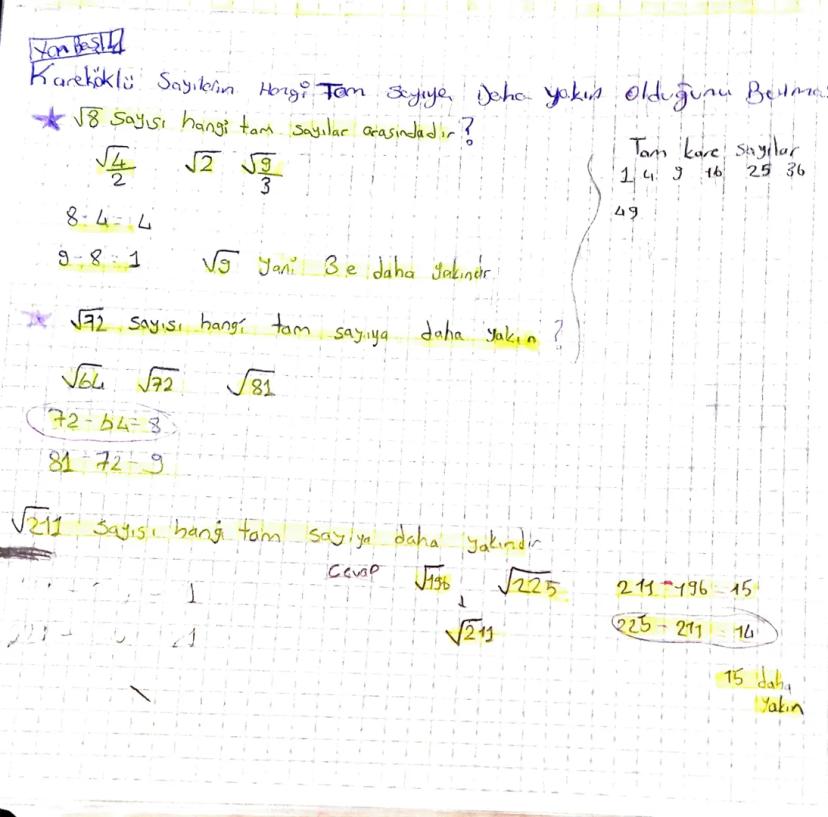 Yan Başlık
Kareköklü Sayıların Hangi Tam Sayıya Daha yakın Olduğunu Belirleme
√8 sayısı hangi tam sayılar arasındadır?
√4 √2 √9
2 3
8-4=4
9-8=1 √9 yani 3e daha yakındır
Tam kare sayılar
1 4 9 16 25 36
49
√72 sayısı hangi tam sayıya daha yakın?
√64 √72 √81
72-64=8
81-72=9
√211 sayısı hangi tam sayıya daha yakındır
Cevap √196 √225 211-196=15
√211 225-211=14
15 daha
yakın